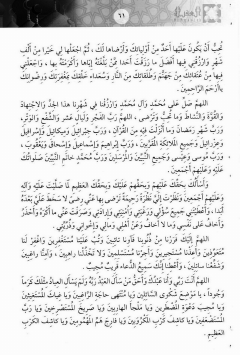 ٦١
تُحِبُّ أَنْ يَكُونَ عَلَيْهَا أَحَدٌ مِنْ أَوْلِيَائِكَ وَأَرْضَاهَا لَكَ ، ثُمَّ اجْعَلْهَا لِي خَيْراً مِنْ أَلْفِ
شَهْرٍ وَارْزُقْنِي فِيهَا أَفْضَلَ مَا رَزَقْتَ أَحَداً مِمَّنْ بَلَّغْتَهُ إِيَّاهَا وَأَكْرَمْتَهُ بِهَا ، وَاجْعَلْنِي
فِيهَا مِنْ عُتَقَائِكَ مِنْ جَهَنَّمَ وَطُلَقَائِكَ مِنَ النَّارِ وَسُعَدَاءِ خَلْقِكَ بِمَغْفِرَتِكَ وَرِضْوَانِكَ
يَا أَرْحَمَ الرَّاحِمِينَ .
اللهم صَلِّ عَلَى مُحَمَّدٍ وَآلِ مُحَمَّدٍ وَارْزُقْنَا فِي شَهْرِنَا هَذَا الْجِدَّ وَالِاجْتِهَادَ
وَالْقُوَّةَ وَالنَّشَاطَ وَمَا تُحِبُّ وَتَرْضَى ، اللهم رَبَّ الْفَجْرِ وَلَيَالٍ عَشْرٍ وَالشَّفْعِ وَالْوَتْرِ،
وَرَبَّ شَهْرِ رَمَضَانَ وَمَا أَنْزَلْتَ فِيهِ مِنَ الْقُرْآنِ ، وَرَبَّ جَبْرَئِيلَ وَمِيكَائِيلَ وَإِسْرَافِيلَ
وَعِزْرَائِيلَ وَجَمِيعِ الْمَلَائِكَةِ الْمُقَرَّبِينَ ، وَرَبَّ إِبْرَاهِيمَ وَإِسْمَاعِيلَ وَإِسْحَاقَ وَيَعْقُوبَ ،
وَرَبَّ مُوسَى وَعِيسَى وَجَمِيعِ النَّبِيِّينَ وَالْمُرْسَلِينَ وَرَبَّ مُحَمَّدٍ خَاتَمِ النَّبِيِّينَ صَلَوَاتُكَ
عَلَيْهِ وَعَلَيْهِمْ أَجْمَعِينَ .
وَأَسْأَلُكَ بِحَقِّكَ عَلَيْهِمْ وَبِحَقِّهِمْ عَلَيْكَ وَبِحَقِّكَ الْعَظِيمِ لَمَّا صَلَّيْتَ عَلَيْهِ وَآلِهِ
وَعَلَيْهِمْ أَجْمَعِينَ وَنَظَرْتَ إِلَيَّ نَظْرَةً رَحِيمَةً تَرْضَى بِهَا عَنِّي رِضًى لَا سَخَطَ عَلَيَّ بَعْدَهُ
أَبَداً ، وَأَعْطَيْتَنِي جَمِيعَ سُؤْلِي وَرَغْبَتِي وَأُمْنِيَّتِي وَإِرَادَتِي وَصَرَفْتَ عَنِّي مَا أَكْرَهُ وَأَحْذَرُ
وَأَخَافُ عَلَى نَفْسِي وَمَا لَا أَخَافُ وَعَنْ أَهْلِي وَمَالِي وَإِخْوَانِي وَذُرِّيَّتِي .
اللهم إِلَيْكَ فَرَرْنَا مِنْ ذُنُوبِنَا فَآوِنَا تَائِبِينَ وَتُبْ عَلَيْنَا مُسْتَغْفِرِينَ وَاغْفِرْ لَنَا
مُتَعَوِّذِينَ وَأَعِذْنَا مُسْتَجِيرِينَ وَأَجِرْنَا مُسْتَسْلِمِينَ وَلَا تَخْذُلْنَا رَاهِبِينَ ، وَآمِنَّا رَاغِبِينَ
وَشَفِّعْنَا سَائِلِينَ ، وَأَعْطِنَا إِنَّكَ سَمِيعُ الدُّعَاءِ قَرِيبٌ مُجِيبٌ .
اللهم أَنْتَ رَبِّي وَأَنَا عَبْدُكَ وَأَحَقُّ مَنْ سَأَلَ الْعَبْدُ رَبُّهُ وَلَمْ يَسْأَلِ الْعِبَادُ مِثْلَكَ كَرَماً
وَجُوداً ، يَا مَوْضِعَ شَكْوَى السَّائِلِينَ وَيَا مُنْتَهَى حَاجَةِ الرَّاغِبِينَ وَيَا غِيَاثَ الْمُسْتَغِيثِينَ
وَيَا مُجِيبَ دَعْوَةِ الْمُضْطَرِّينَ وَيَا مَلْجَأَ الْهَارِبِينَ وَيَا صَرِيخَ الْمُسْتَصْرِخِينَ وَيَا رَبَّ
الْمُسْتَضْعَفِينَ وَيَا كَاشِفَ كَرْبِ الْمَكْرُوبِينَ وَيَا فَارِجَ هَمِّ الْمَهْمُومِينَ وَيَا كَاشِفَ الْكَرْبِ
الْعَظِيمِ .